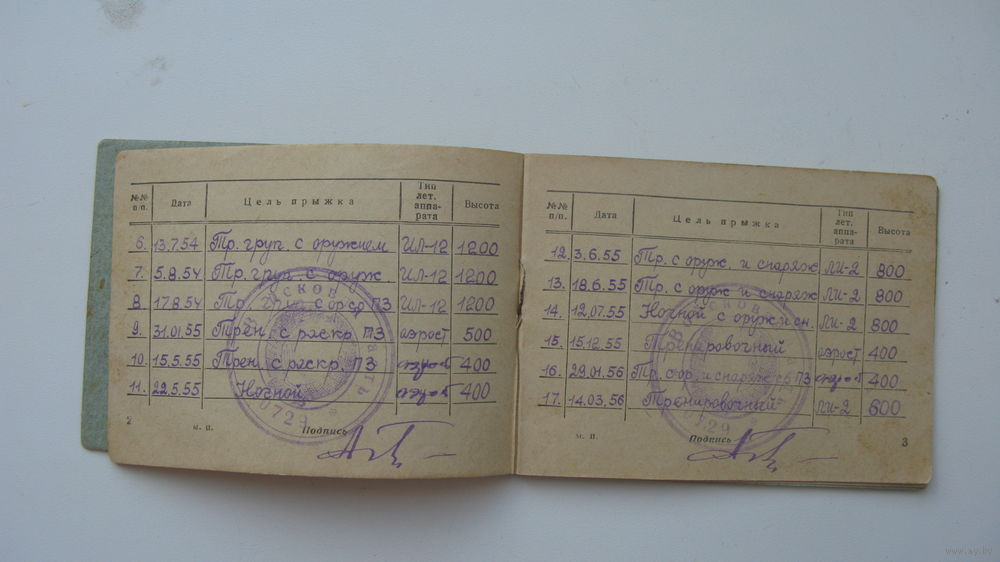 №№ п/п. Дата Цель прыжка Тип лет. аппарата Высота
6. 13.7.54 Тр. груп. с оружием ИЛ-12 1200
7. 5.8.54 Тр. груп. с оруж ИЛ-12 1200
8. 17.8.54 Тр. с ПЗ ИЛ-12 1200
9. 31.01.55 Трен. с раскр. ПЗ аэрост 500
10. 15.5.55 Трен. с раскр. ПЗ 400
11. 22.5.55 Ночной 400
2 м. п. Подпись
0729
№№ п/п. Дата Цель прыжка Тип лет. аппарата Высота
12. 3.6.55 Тр. с оруж. и снаряж ЛИ-2 800
13. 18.6.55 Тр. с оруж и снаряж ЛИ-2 800
14. 12.07.55 Ночной с оружием ЛИ-2 800
15. 15.12.55 Тренировочный аэрост 400
16. 29.01.56 Тр. с ор. и снаряж ПЗ 400
17. 14.03.56 Тренировочный ЛИ-2 600
м. п. Подпись 3
www.ay.by